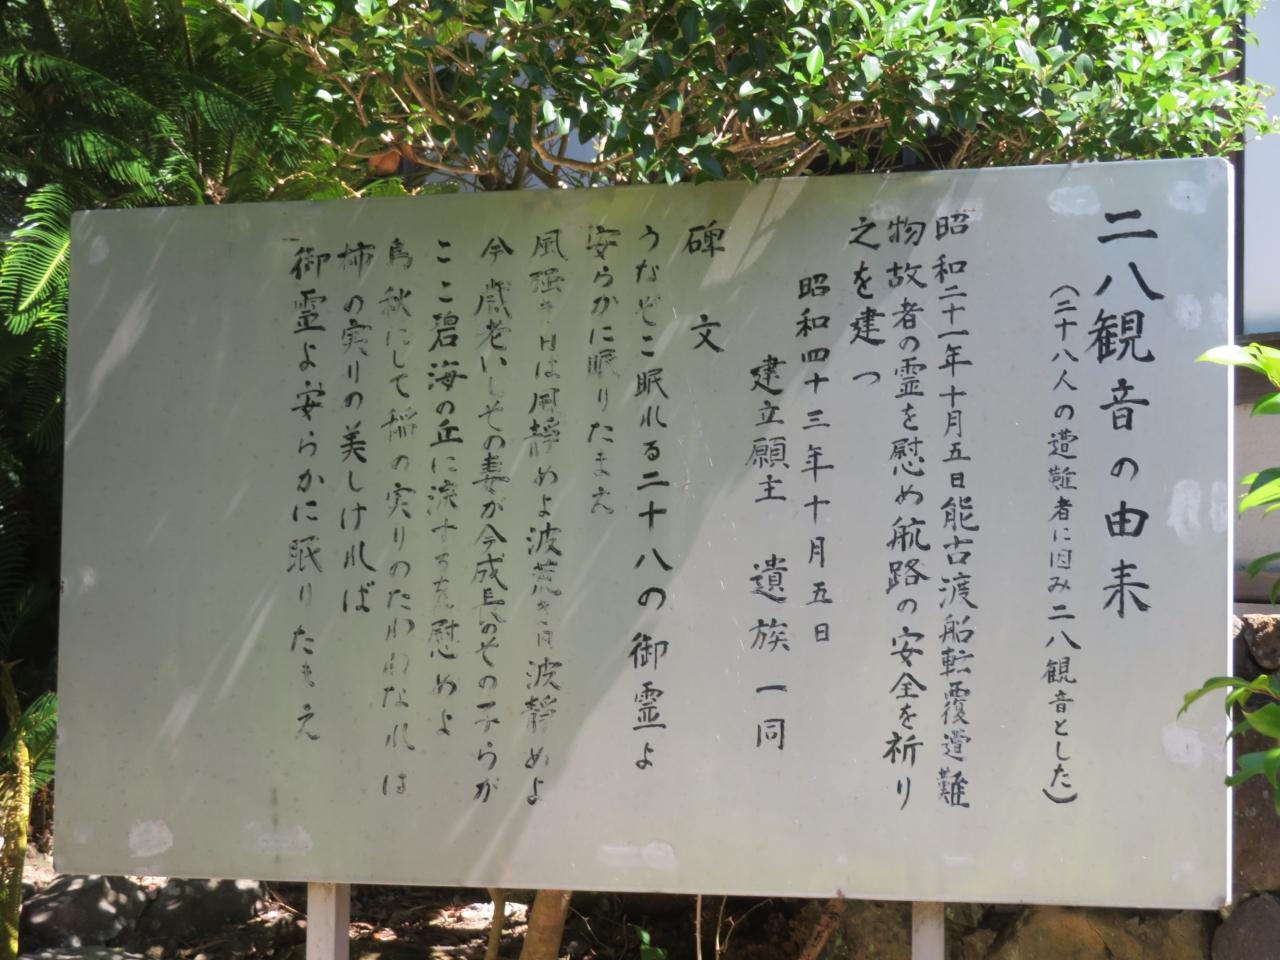 二八観音の由来
(二十八人の遭難者に因み二八観音とした)
昭和二十一年十月五日能古渡船転覆遭難
物故者の霊を慰め航路の安全を祈り
之を建つ
昭和四十三年十月五日
建立願主 遺族一同
碑文
うなぞこ眠れる二十八の御霊よ
安らかに眠りたまえ
風强き日は風靜めよ波荒き日波靜めよ
今歳老いしその妻が今成長のその子らが
ここ碧海の丘に涙する見慰めよ
島秋にして稲の実りのたわわなれは
柿の実りの美しければ
御霊よ安らかに眠りたまえ